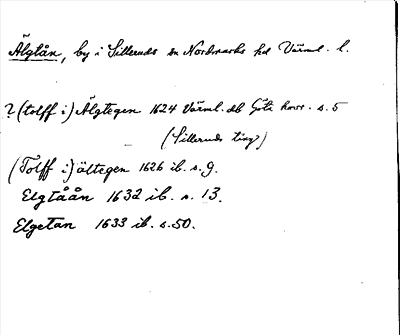 Älgtån, by i Sillerud sn Nordmarks hd Värml. l.
? (tolff i) Älgtegen 1624 Värml. db Göta hovr. s. 5
(Sillerud ting)
(Tolff i) ältegen 1626 ib. s. 9.
Elgtåån 1632 ib. s. 13.
Elgetan 1633 ib. s. 50.